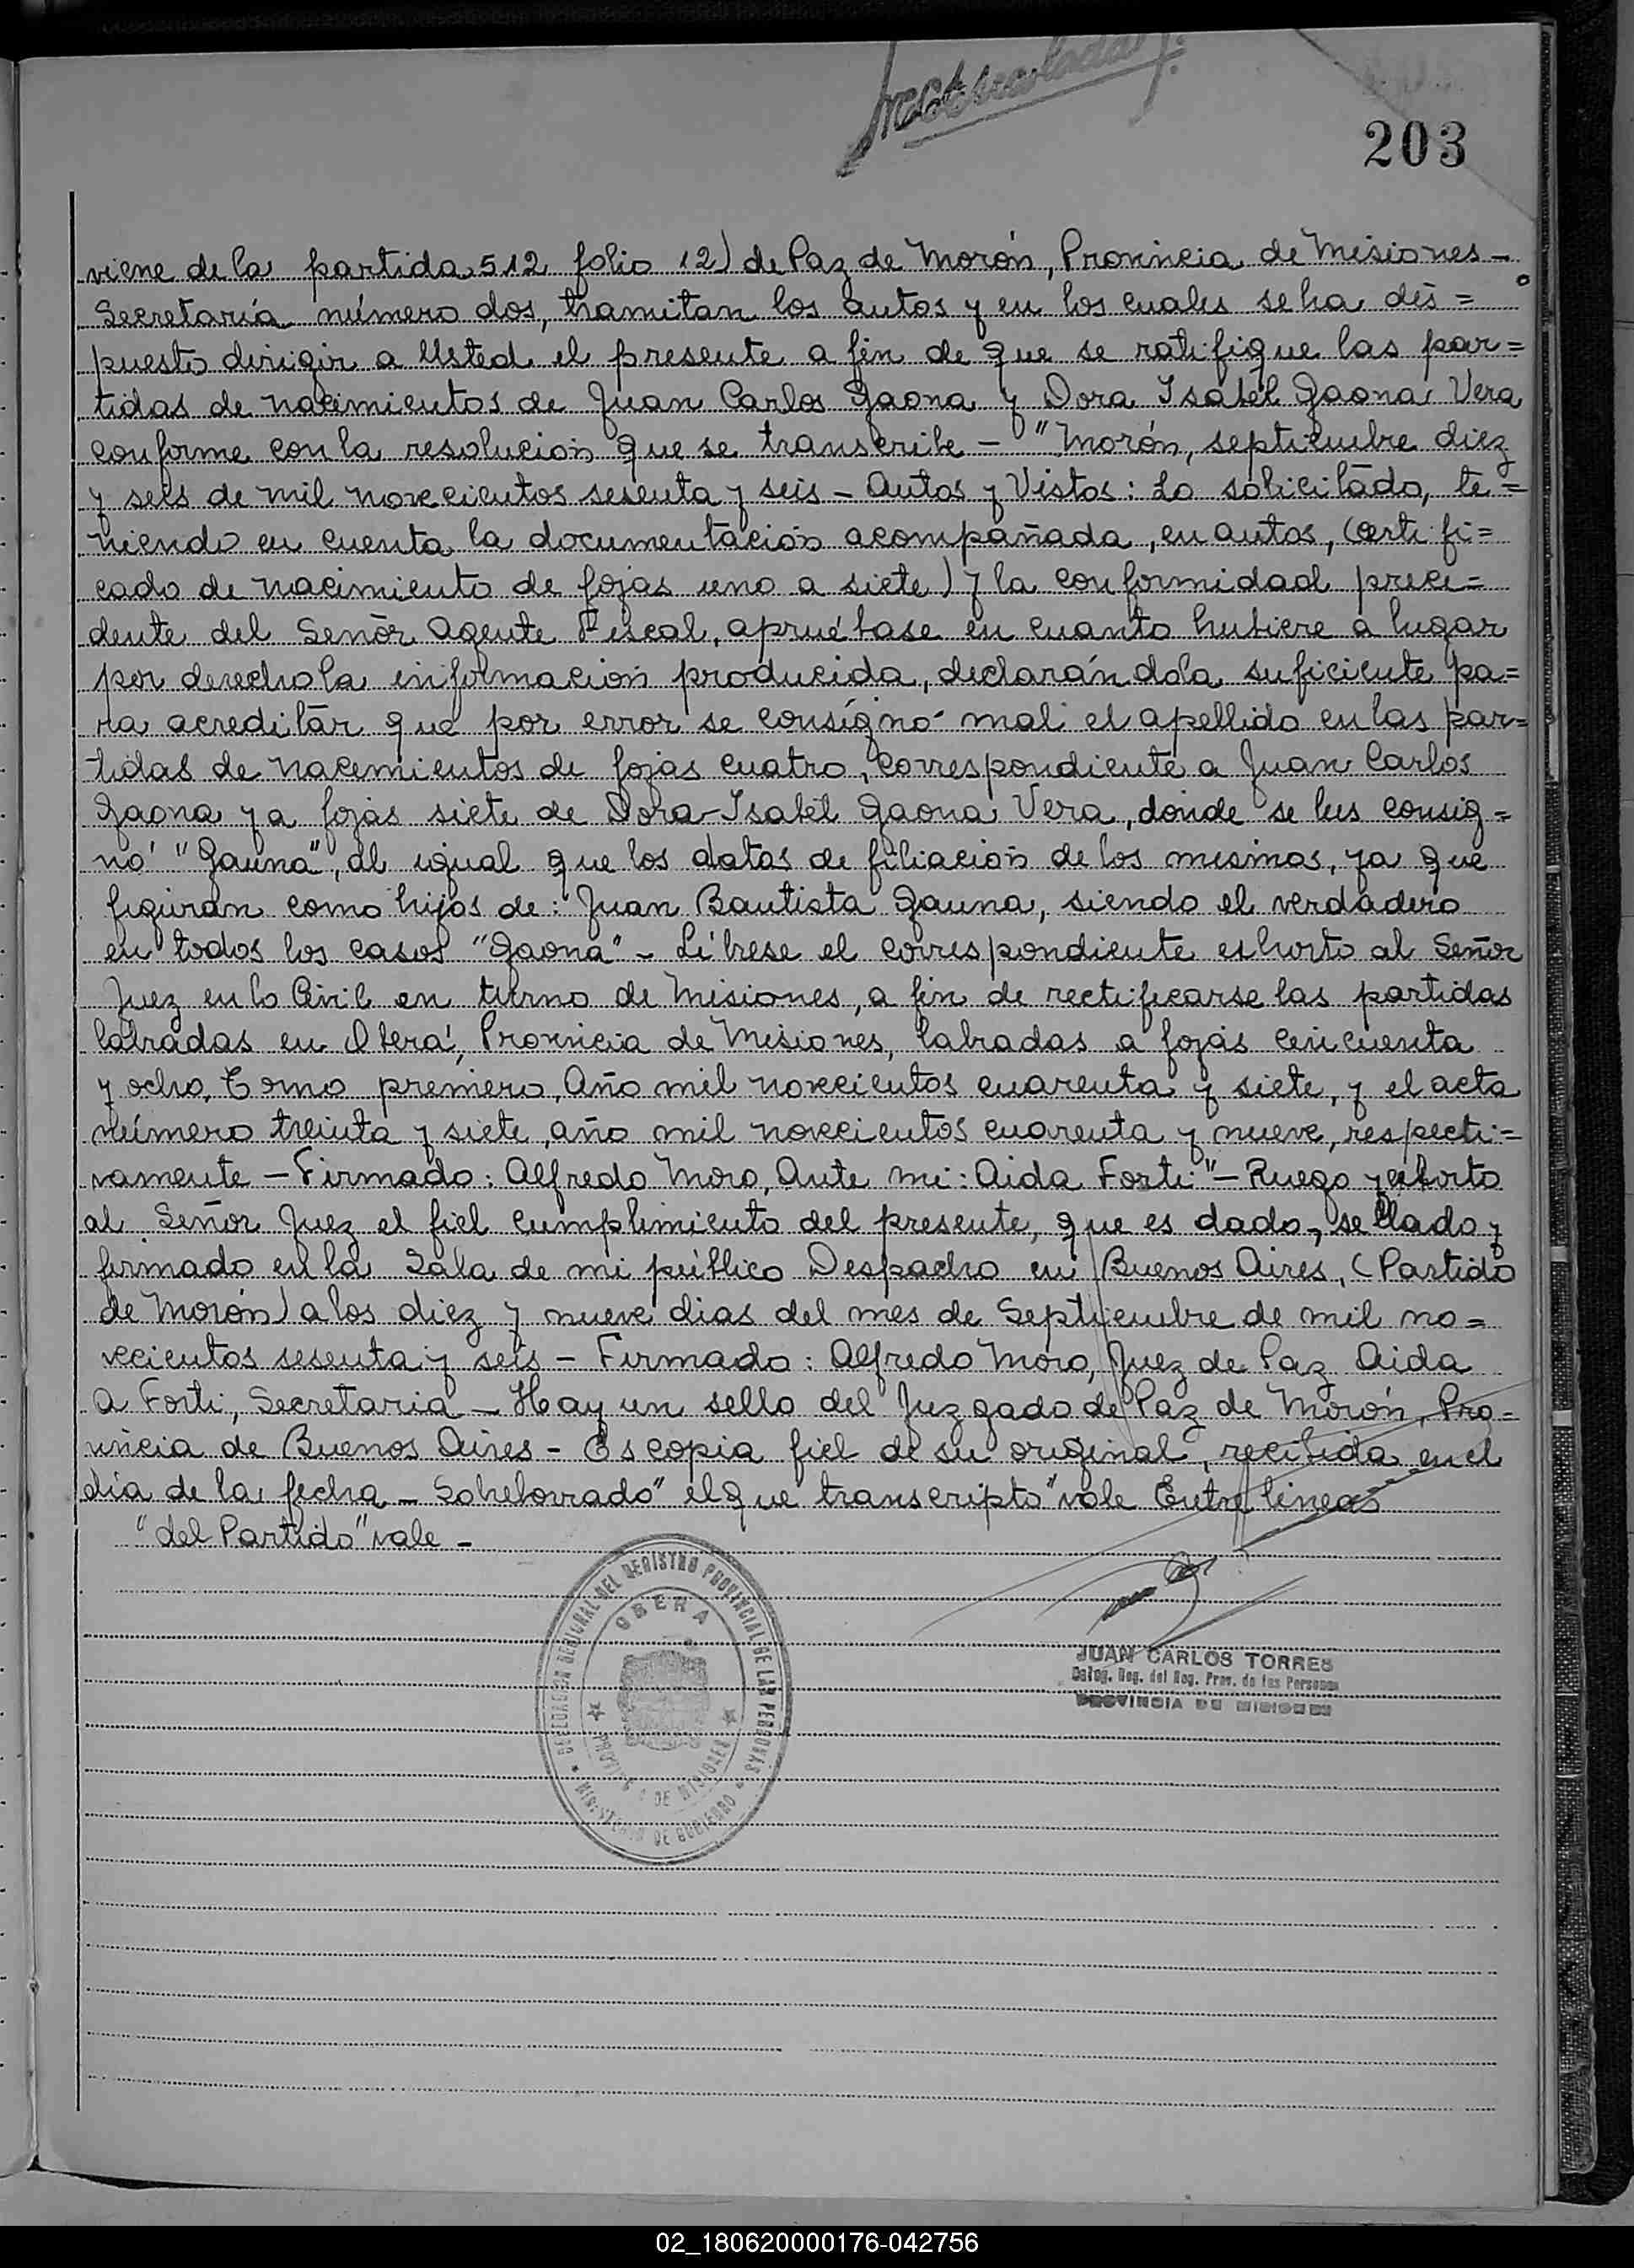 203
viene de la partida 512 folio 12) de Paz de Morón, Provincia de Misiones -
Secretaría número dos, tramitan los autos y en los cuales se ha dis=
puesto dirigir a Usted el presente a fin de que se ratifique las par=
tidas de nacimientos de Juan Carlos Gaona y Dora Isabel Gaona Vera
conforme con la resolución que se transcribe - "Morón, septiembre diez
y seis de mil novecientos sesenta y seis - Autos y Vistos: Lo solicitado, te=
niendo en cuenta la documentación acompañada, en autos, (certifi=
cado de nacimiento de fojas uno a siete) y la conformidad prece=
dente del Señor Agente Fiscal, apruébase en cuanto hubiere a lugar
por derecho la información producida, declarándola suficiente pa=
ra acreditar que por error se consignó mal el apellido en las par=
tidas de nacemientos de fojas cuatro, correspondiente a Juan Carlos
Gaona y a fojas siete de Dora-Isabel Gaona Vera, donde se les consig=
nó "Gauna", al igual que los datos de filiación de los mismos, ya que
figuran como hijos de: Juan Bautista Gauna, siendo el verdadero
en todos los casos "Gaona" - Líbrese el correspondiente exhorto al Señor
Juez en lo Civil en turno de Misiones, a fin de rectificarse las partidas
labradas en Oberá, Provincia de Misiones, labradas a fojas cincuenta
y ocho, Tomo premiero, Año mil novecientos cuarenta y siete, y el acta
número treinta y siete, año mil novecientos cuarenta y nueve, respecti-
vamente - Firmado: Alfredo Moro, Ante mi: Aida Forti" - Ruego y exhorto
al Señor Juez el fiel cumplimiento del presente, que es dado, sellado y
firmado en la Sala de mi público Despacho en Buenos Aires, (Partido
de Morón) a los diez y nueve dias del mes de Septiembre de mil no=
vecientos sesenta y seis - Firmado: Alfredo Moro, Juez de Paz Aida
A Forti, Secretaria - Hay un sello del Juzgado de Paz de Morón, Pro=
vincia de Buenos Aires - Es copia fiel de su original, recibida en el
día de la fecha - Sobreborrado "el que transcripto" vale Entre lineas
"del Partido" vale -
DELEGACION REGIONAL DEL REGISTRO PROVINCIAL DE LAS PERSONAS
OBERA
PROVINCIA DE MISIONES
MINISTERIO DE GOBIERNO
JUAN CARLOS TORRES
Deleg. Reg. del Reg. Prov. de las Personas
PROVINCIA DE MISIONES
02_180620000176-042756